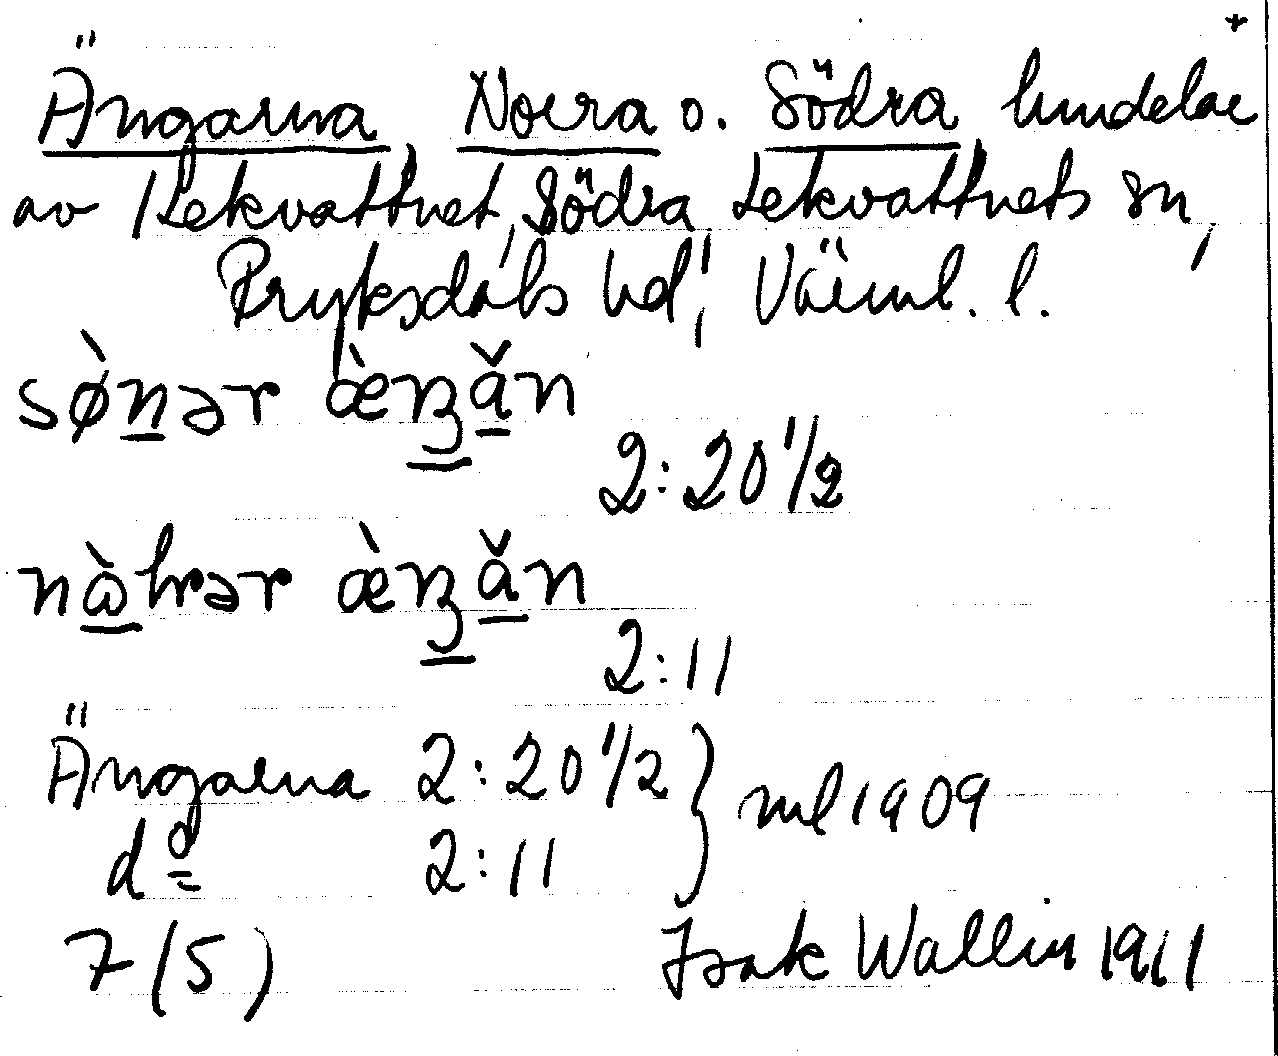 +
Ängarna, Norra o. Södra hmdelar
av 1 Lekvattnet, Södra Lekvattnets sn,
Fryksdals hd, Värml. l.
sø̀nər æ̀nʒǎn
2:20 1/2
nɑ̀hrər æ̀nʒǎn
2:11
Ängarna 2:20 1/2 } ml 1909
do 2:11
7 (5) Isak Wallin 1911